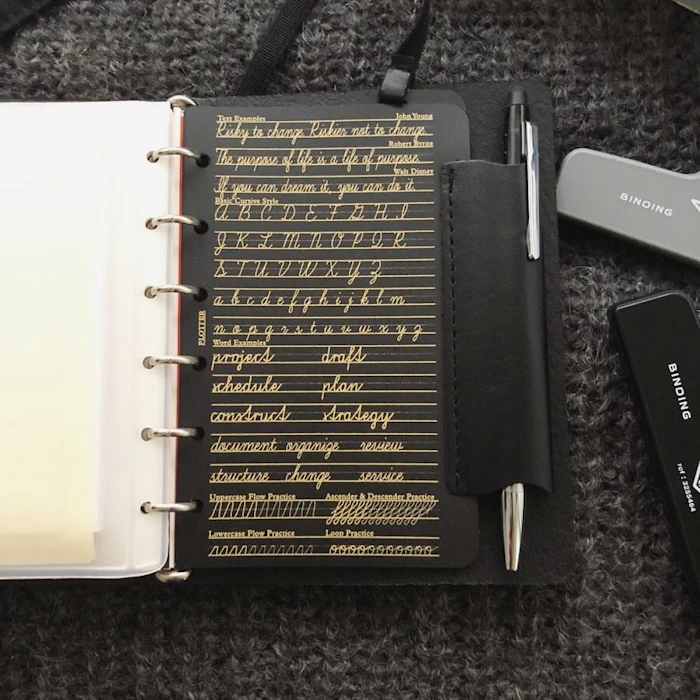 Text Examples John Young
Risky to change. Riskier not to change.
Robert Byrne
The purpose of life is a life of purpose.
Walt Disney
If you can dream it, you can do it.
Basic Cursive Style
A B C D E F G H I
J K L M N O P Q R
S T U V W X Y Z
a b c d e f g h i j k l m
n o p q r s t u v w x y z
Word Examples
project draft
schedule plan
construct strategy
document organize review
structure change service
Uppercase Flow Practice Ascender & Descender Practice
Lowercase Flow Practice Loop Practice
PLOTTER
BINDING
BINDING
ref : 3235464